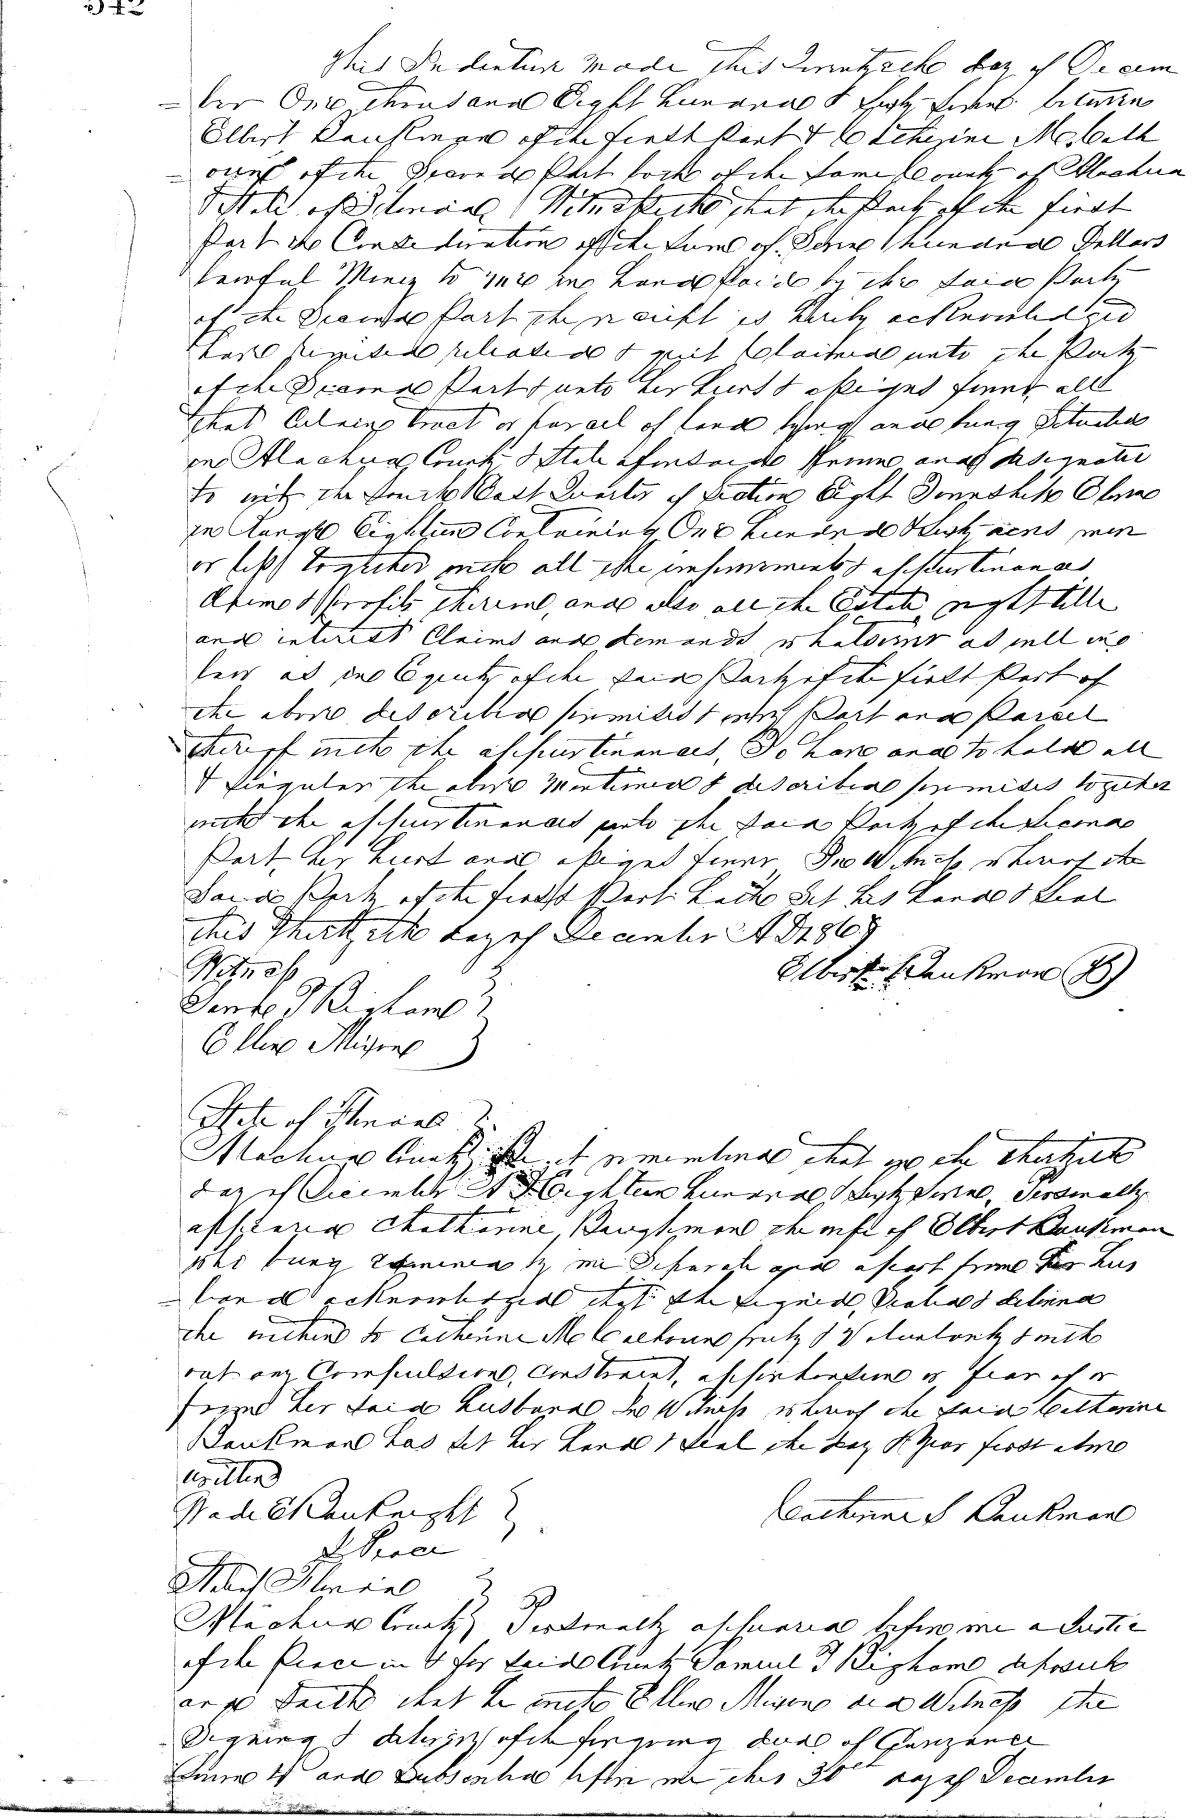 342
This Indenture made this Twentyeth day of Decem
- ber One thousand Eight hundred & Sixty Seven between
Elbert Baukman of the first Part & Catherine M. Calh
- oun of the Second Part both of the Same County of Alachua
& State of Florida Witnesseth that the Party of the first
Part in Consideration of the Sum of Seven hundred Dollars
lawful Money to me in hand paid by the Said Party
of the Second Part the receipt is hereby acknowledged
have remised released & quit Claimed unto the Party
of the Second Part & unto her heirs & assigns forever all
that Certain tract or parcel of land lying and being Situated
in Alachua County & State aforesaid known and designated
to wit the South East Quarter of Section Eight Township Eleven
in Range Eighteen Containing One hundred & Sixty acres more
or less together with all the improvements & appurtinances
& profits thereon, and also all the Estate, right title
and interest Claims and demands whatsoever as well in
law as in Equity of the Said Party of the first Part of
the above described premises & every Part and Parcel
thereof with the appurtinances, To have and to hold all
& Singular the above Mentioned & described premises together
with the appurtinances unto the Said Party of the Second
Part, her heirs and assigns forever In Witness whereof the
Said Party of the first Part hath Set his hand & Seal
this Thirtyeth day of December A D 1867
Witness
Elbert Baukman
Saml T Bigham
Ellen Mixon
State of Florida
Alachua County Be it remembered that on the thirtyeth
day of December A D Eighteen hundred & Sixty Seven, Personally
appeared Chatharine Baughman the wife of Elbert Baukman
who being examined by me Separate and apart from her hus
- band acknowledged that She Signed, Sealed & delivered
the within to Catherine M Calhoun freely & Voluntarily & with
out any Compulsion, Constraint, apprehension or fear of or
from her Said husband In Witness whereof the Said Catherine
Baukman has Set her hand & Seal the day & Year first above
written
Wade E Bauknight
Catherine S Baukman
J. Peace
State of Florida
Alachua County Personally appeared before me a Justice
of the Peace in & for Said County Samuel T Bigham deposeth
and Saith that he with Ellen Mixon did Witness the
Signing & delivery of the foregoing deed of Conveyance
Sworn to and Subscribed before me this 30th day of December